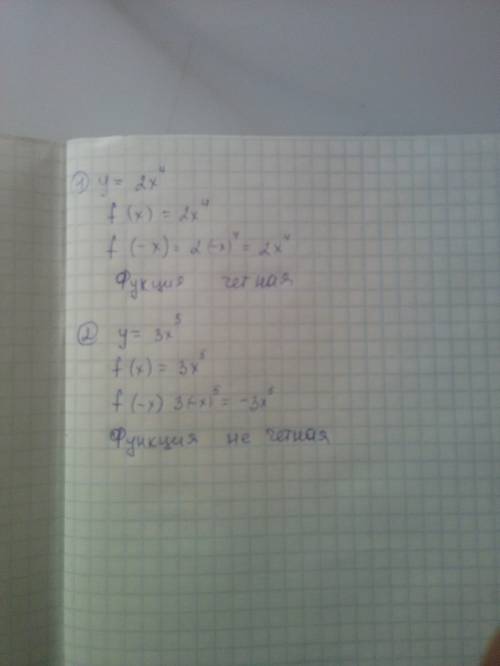 ① y = 2x⁴
f (x) = 2x⁴
f (-x) = 2(-x)⁴ = 2x⁴
Фукция четная
② y = 3x⁵
f(x) = 3x⁵
f(-x) 3(-x)⁵ = -3x⁵
Функция не четная